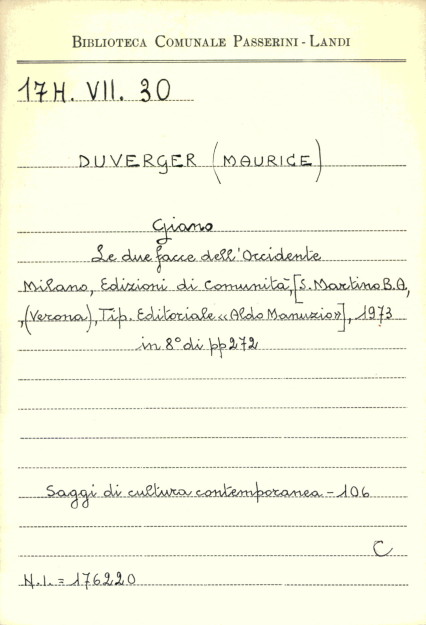 BIBLIOTECA COMUNALE PASSERINI - LANDI
17H. VII. 30
DUVERGER (MAURICE)
Giano
Le due facce dell'Occidente
Milano, Edizioni di Comunità, [S. Martino B.A,
,(Verona), Tip. Editoriale «Aldo Manuzio»], 1973
in 8° di pp 272
Saggi di cultura contemporanea - 106
C
N.I. = 176220